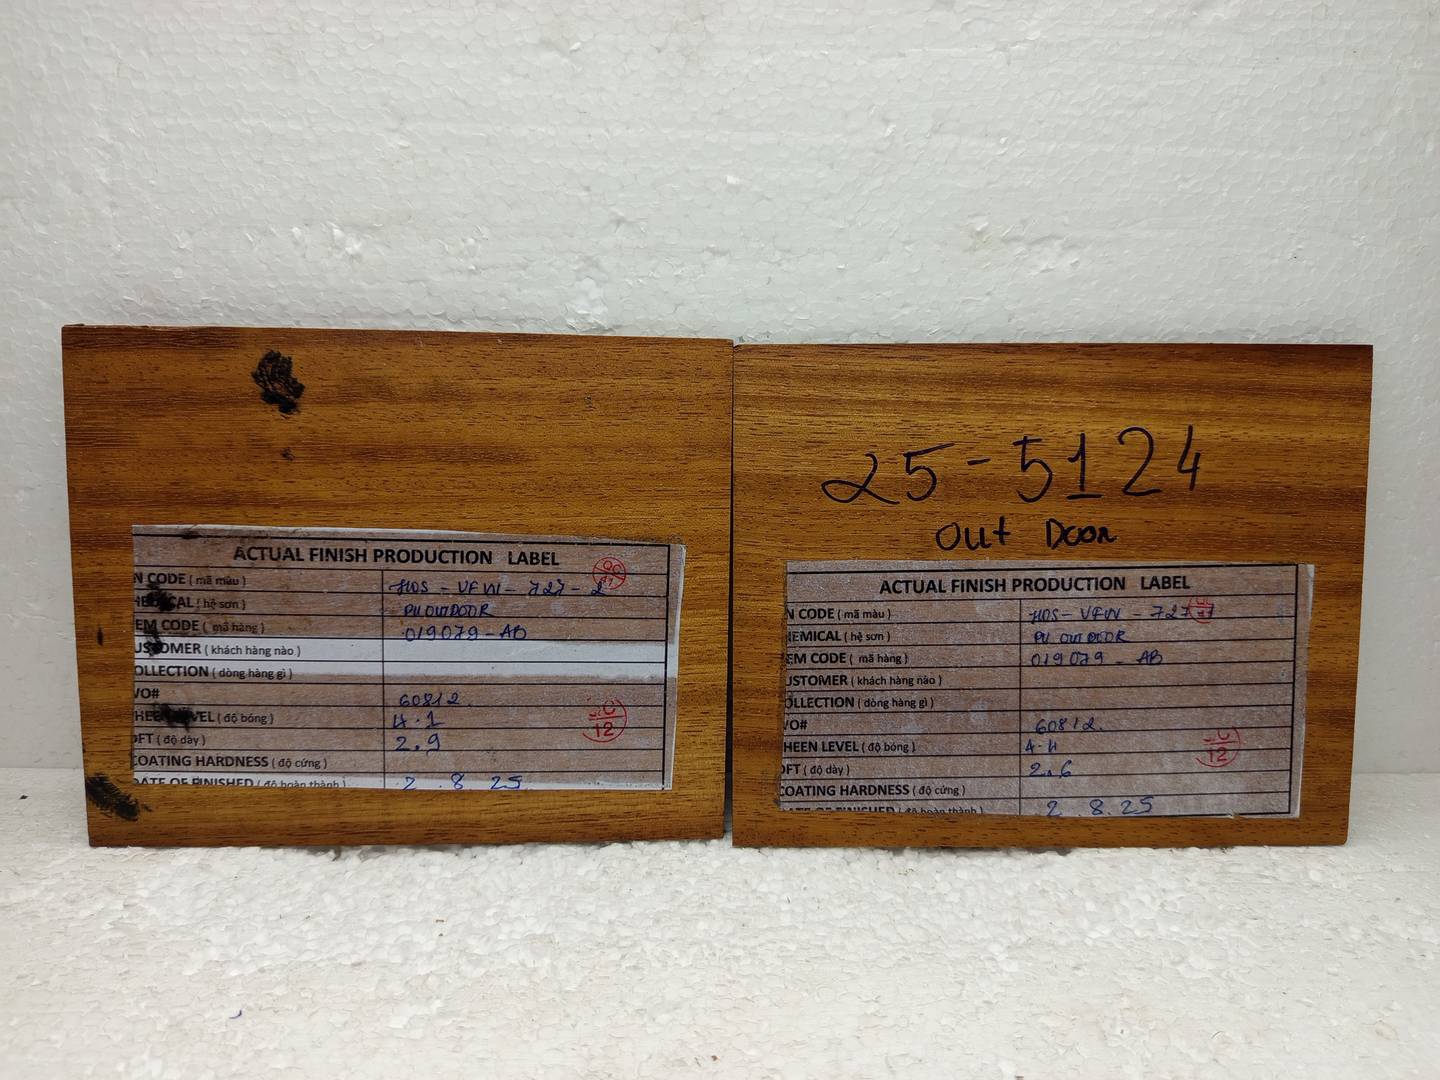 ACTUAL FINISH PRODUCTION LABEL
N CODE ( mã màu ) HOS - VFW - 727 - 2
HEMICAL ( hệ sơn ) PU OUTDOOR
EM CODE ( mã hàng ) 019079 - AB
USTOMER ( khách hàng nào )
OLLECTION ( dòng hàng gì )
VO# 60812
HEEN LEVEL ( độ bóng ) 4.1
OFT ( độ dày ) 2.9
COATING HARDNESS ( độ cứng )
DATE OF FINISHED ( độ hoàn thành ) 2 . 8 . 25
12
25-5124
Out Door
ACTUAL FINISH PRODUCTION LABEL
N CODE ( mã màu ) HOS - VFW - 727
HEMICAL ( hệ sơn ) PU OUTDOOR
EM CODE ( mã hàng ) 019079 - AB
USTOMER ( khách hàng nào )
OLLECTION ( dòng hàng gì )
VO# 60812
HEEN LEVEL ( độ bóng ) 4.4
OFT ( độ dày ) 2.6
COATING HARDNESS ( độ cứng )
DATE OF FINISHED ( độ hoàn thành ) 2 . 8 . 25
12